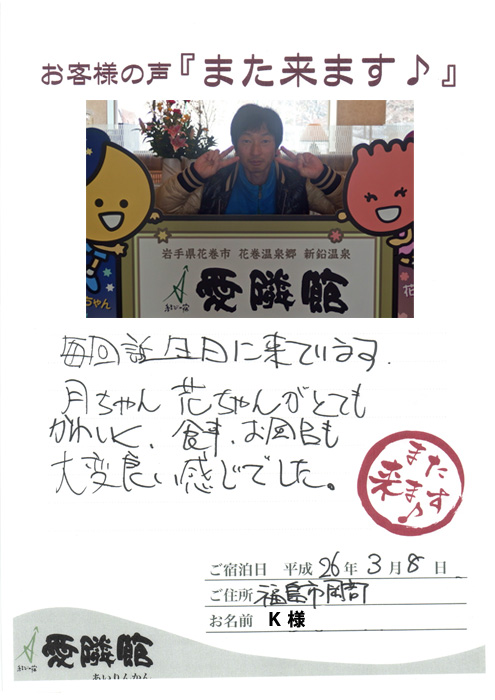 お客様の声『また来ます♪』
岩手県花巻市 花巻温泉郷 新鉛温泉
結びの宿 愛隣館
ちゃん
花
毎回誕生日に来ています.
月ちゃん 花ちゃんがとても
かわいく、食事、お風呂も
大変良い感じでした。
また
来ます♪
ご宿泊日 平成 26 年 3 月 8 日
ご住所 福島市岡部
お名前 K 様
結びの宿 愛隣館
あいりんかん